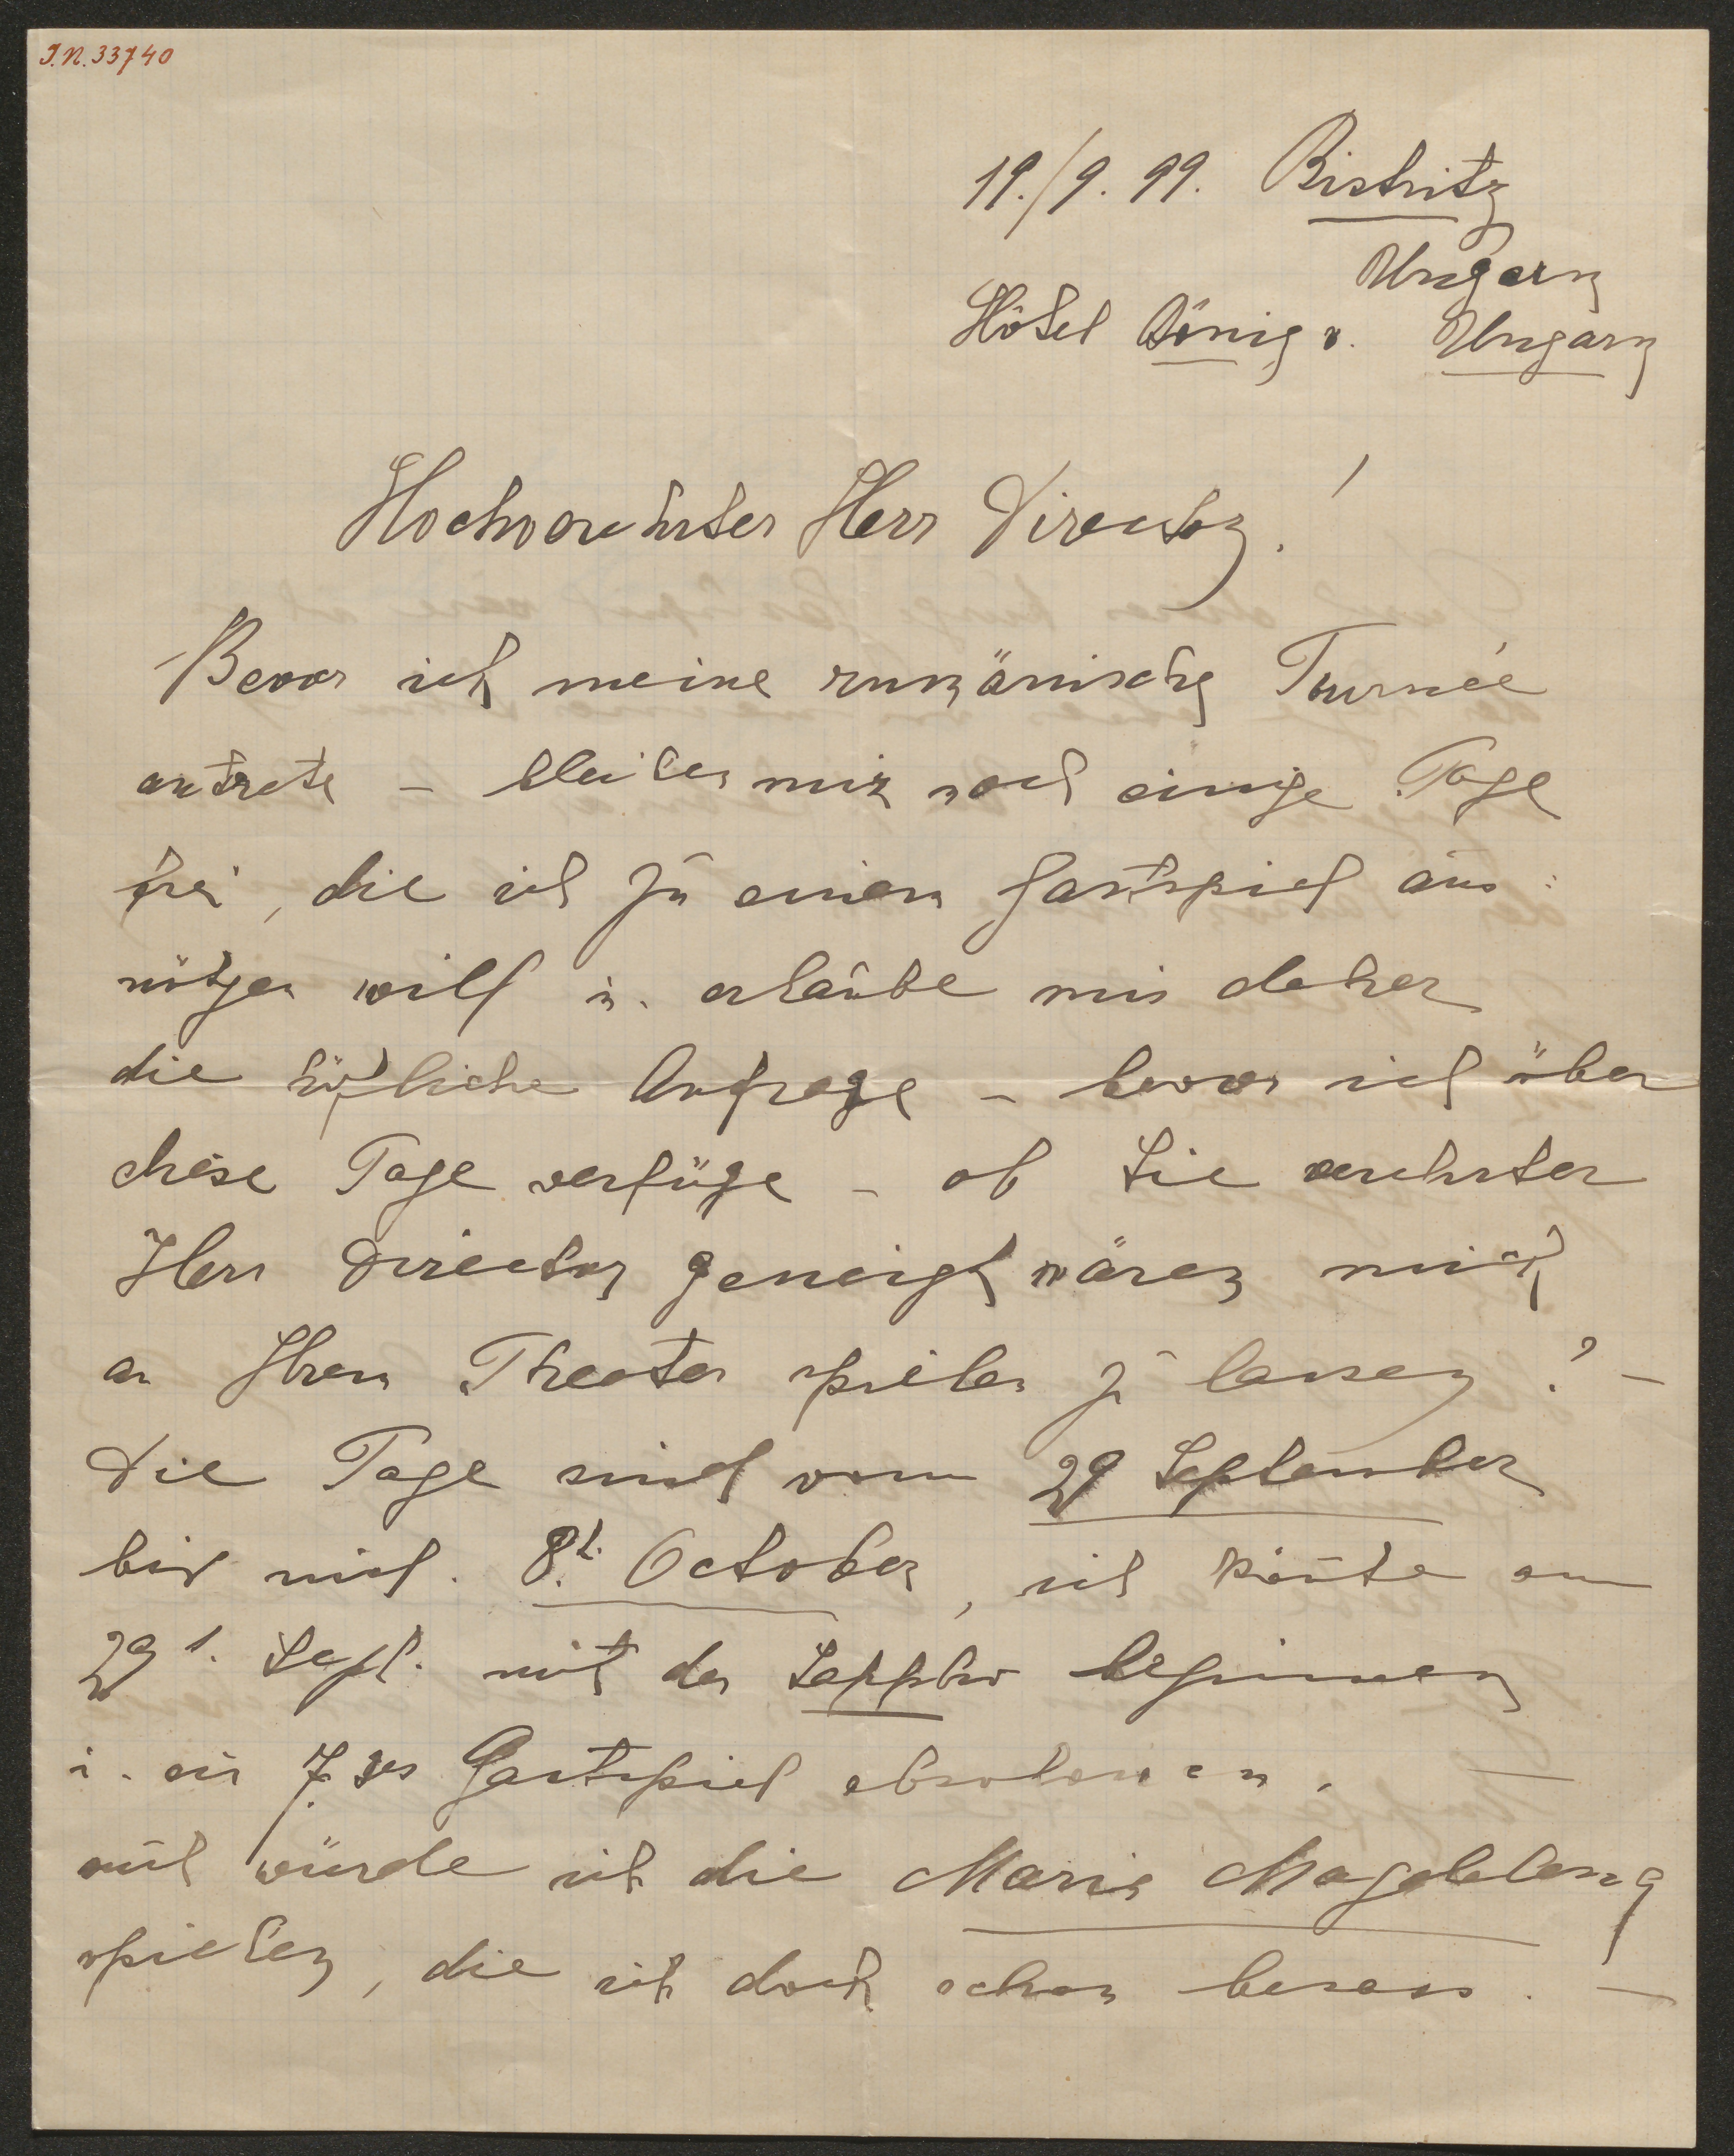 J.N. 33740
19./9. 99. Bistritz
Ungarn
Hôtel König v. Ungarn
Hochverehrter Herr Director!
Bevor ich meine rumänische Tournée
antrete – bleiben mir noch einige Tage
frei, die ich zu einem Gastspiel aus=
nützen will u. erlaube mir daher
die höfliche Anfrage – bevor ich über
diese Tage verfüge – ob Sie verehrter
Herr Director geneigt wären mich
an Ihrem Theater spielen zu lassen? –
Die Tage sind vom 29 September
bis incl. 8t. October, ich könte am
29t. Sept. mit der Sappho beginnen
u. ein 7. ges Gastspiel absolviren. —
auch würde ich die Maria Magdalena
spielen, die ich doch schon besass. —